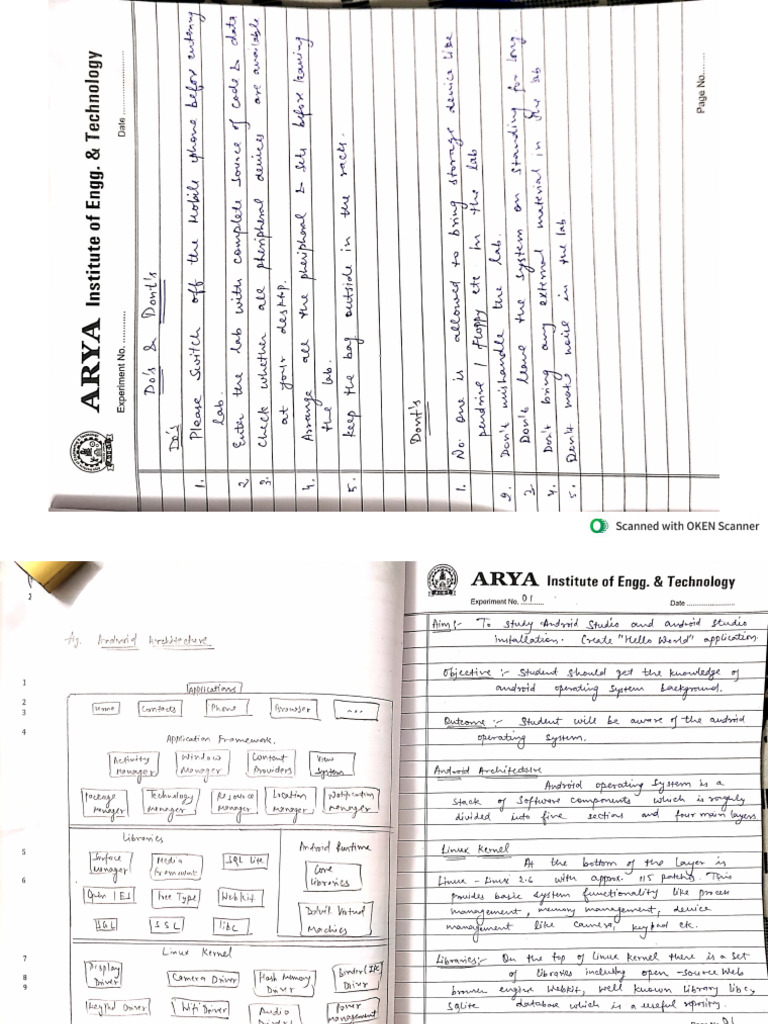 ARYA Institute of Engg. & Technology
Experiment No. ............
Date ....................
Do's & Dont's
Do's
1. Please Switch off the Mobile phone before entering
lab.
2. Enter the lab with complete source of code & data
3. Check whether all pheripheral devices are available
at your desktop.
4. Arrange all the pheripheral & sets before leaving
the lab.
5. Keep the bag outside in the racks.
Dont's
1. No one is allowed to bring storage device like
pendrive / floppy etc in the lab
2. Don't mishandle the lab.
3. Don't leave the system on standing for long.
4. Don't bring any external material in the lab
5. Don't make noice in the lab
Page No.......
Scanned with OKEN Scanner
fig. Android Architecture
Applications
Home Contacts Phone Browser ...
Application Framework.
Activity Manager Window Manager Content Providers View System
Package Manager Technology Manager Resource Manager Location Manager Notification Manager
Libraries
Surface Manager Media Framework SQL Lite
Open | ES Free Type Webkit
SGL SSL libc
Android Runtime
Core Libraries
Dalvik Virtual Machies
Linux Kernel
Display Driver Camera Driver Flash Memory Driver Binder (IPC) Driver
Keypad Driver Wifi Driver Audio Driver Power Management
ARYA Institute of Engg. & Technology
Experiment No. 01
Date ....................
Aim :- To study Android Studio and android studio
installation. Create "Hello World" application.
Objective :- Student should get the knowledge of
android operating system background.
Outcome :- Student will be aware of the android
operating system.
Android Architecture
Android operating System is a
stack of software components which is rougly
divided into five sections and four main layers
Linux Kernel
At the bottom of the layer is
Linux - Linux 2.6 with approx 115 patches. This
provides basic system functionality like process
management, memory management, device
management like camera, keypad etc.
Libraries :- On the top of Linux Kernel there is a set
of libraries including open-source Web
browser engine Webkit, well known library libc,
SQlite database which is a useful repository.